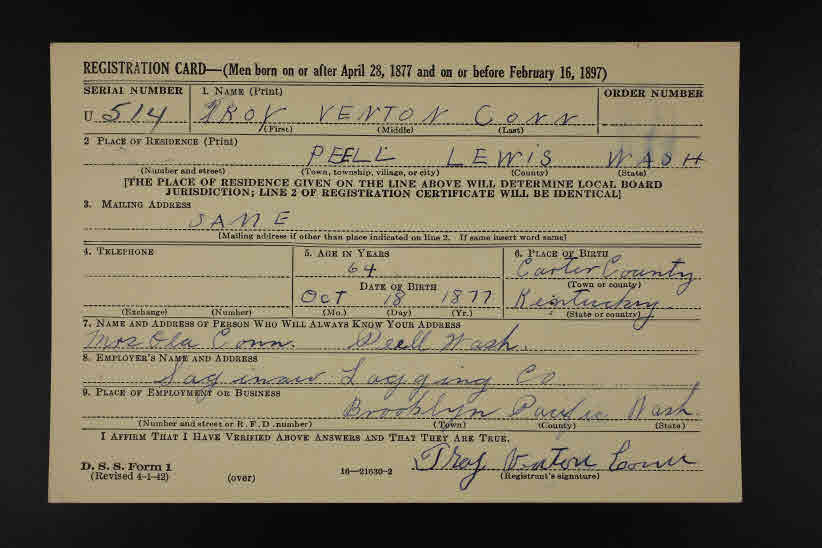 REGISTRATION CARD—(Men born on or after April 28, 1877 and on or before February 16, 1897)
SERIAL NUMBER 1. NAME (Print) ORDER NUMBER
U 514 TROY VENTON CONN
(First) (Middle) (Last)
2 PLACE OF RESIDENCE (Print)
PEELL LEWIS WASH
(Number and street) (Town, township, village, or city) (County) (State)
[THE PLACE OF RESIDENCE GIVEN ON THE LINE ABOVE WILL DETERMINE LOCAL BOARD
JURISDICTION; LINE 2 OF REGISTRATION CERTIFICATE WILL BE IDENTICAL]
3. MAILING ADDRESS
SAME
[Mailing address if other than place indicated on line 2. If same insert word same]
4. TELEPHONE 5. AGE IN YEARS 6. PLACE OF BIRTH
64 Carter County
DATE OF BIRTH (Town or county)
OCT 18 1877 Kentucky
(Exchange) (Number) (Mo.) (Day) (Yr.) (State or country)
7. NAME AND ADDRESS OF PERSON WHO WILL ALWAYS KNOW YOUR ADDRESS
Mrs Ola Conn. Peell Wash.
8. EMPLOYER'S NAME AND ADDRESS
Saginaw Logging Co
9. PLACE OF EMPLOYMENT OR BUSINESS
Brooklyn Pacific Wash.
(Number and street or R. F. D. number) (Town) (County) (State)
I AFFIRM THAT I HAVE VERIFIED ABOVE ANSWERS AND THAT THEY ARE TRUE.
D. S. S. Form 1
(Revised 4-1-42) (over) 16—21630-2 Troy Venton Conn
(Registrant's signature)